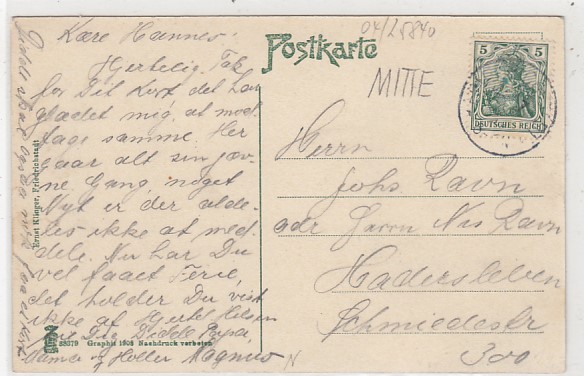 Postkarte
04/25840
MITTE
5 5
DEUTSCHES REICH
Kære Hannes!
Hjertelig Tak
for Dit Kort det har
glædet mig, at mod-
tage samme. Her
gaar alt sin jæv-
ne Gang, noget
Nyt er der alde-
les ikke at med-
dele. Nu har Du
vel faaet Ferie,
det holder Du vist
ikke af. Hjertel. Hilsen
fra Papa,
Mama og Magnus
Herrn
Johs Ravn
adr Herrn Nis Ravn
Hadersleben
Schmiedestr
300
N
Ernst Klinger, Friedrichstadt
58379 Graphit 1908 Nachdruck verboten